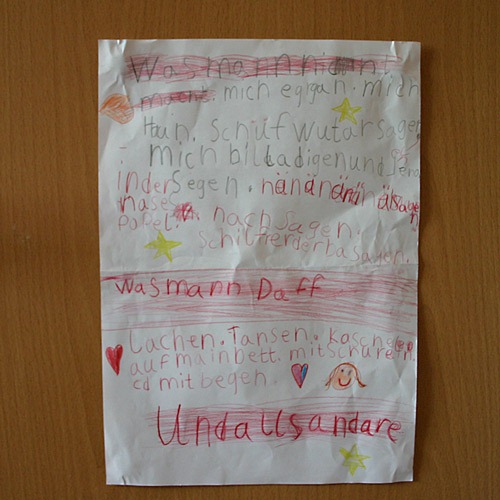 Wasmannnicht
macht. mich egigan. mich
Haun. schufwutarsagen
mich billadigenund
inder Segen. nänänänänäsagen
nase
popel. nachsagen.
schilfterdertasagen.
Wasmann Daff
Lachen. Tansen. kaschen
aufmainbett. mitschuren.
cd mitbegen.
Undallsandare